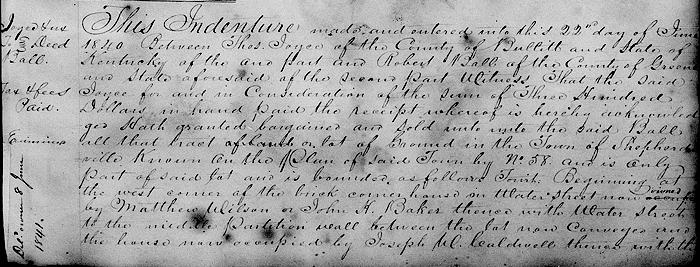 Joyce & ux
To Deed
Ball.
Tax & fees
Paid.
Examined
1841.
This Indenture made and entered into this 22nd day of June
1840 Between Thos. Joyce of the County of Bullitt and State of
Kentucky of the one part and Robert Ball of the County of Green
and State aforesaid of the second part Witness That the said
Joyce for and in Consideration of the sum of Three Hundred
Dollars in hand paid the receipt whereof is hereby acknowled
ged Hath granted bargained and sold unto unto the said Ball
all that tract of land or lot of Ground in the Town of Shepherds
ville Known On the Plan of said Town by No. 58 and is Only
part of said lot and is bounded as follows Towit. Beginning at
the west corner of the brick corner house on Water Street now owned
by Matthew Wilson or John H. Baker thence with Water Street
to the middle Partition wall between the lot now Conveyed and
the house now occupied by Joseph W. Caldwell thence with th